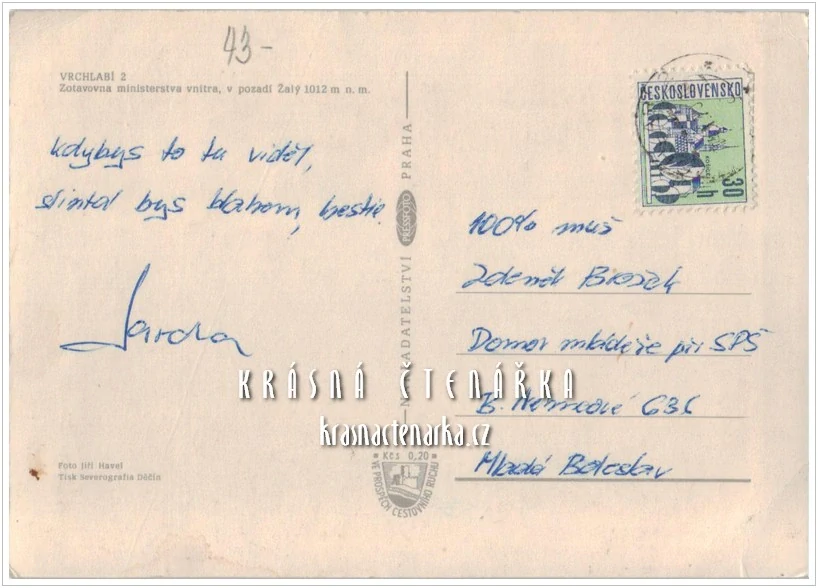 43-
VRCHLABÍ 2
Zotavovna ministerstva vnitra, v pozadí Žalý 1012 m n. m.
Kdybys to tu viděl,
slintal bys blahem, bestie.
Jarda
Foto Jiří Havel
Tisk Severografia Děčín
NAKLADATELSTVÍ PRESSFOTO PRAHA
Kčs 0,20
VE PROSPĚCH CESTOVNÍHO RUCHU
ČESKOSLOVENSKO
30 h
100% muž
Zdeněk
Domov mládeže při SPŠ
B. Němcové
Mladá Boleslav
KRÁSNÁ ČTENÁŘKA
krasnactenarka.cz